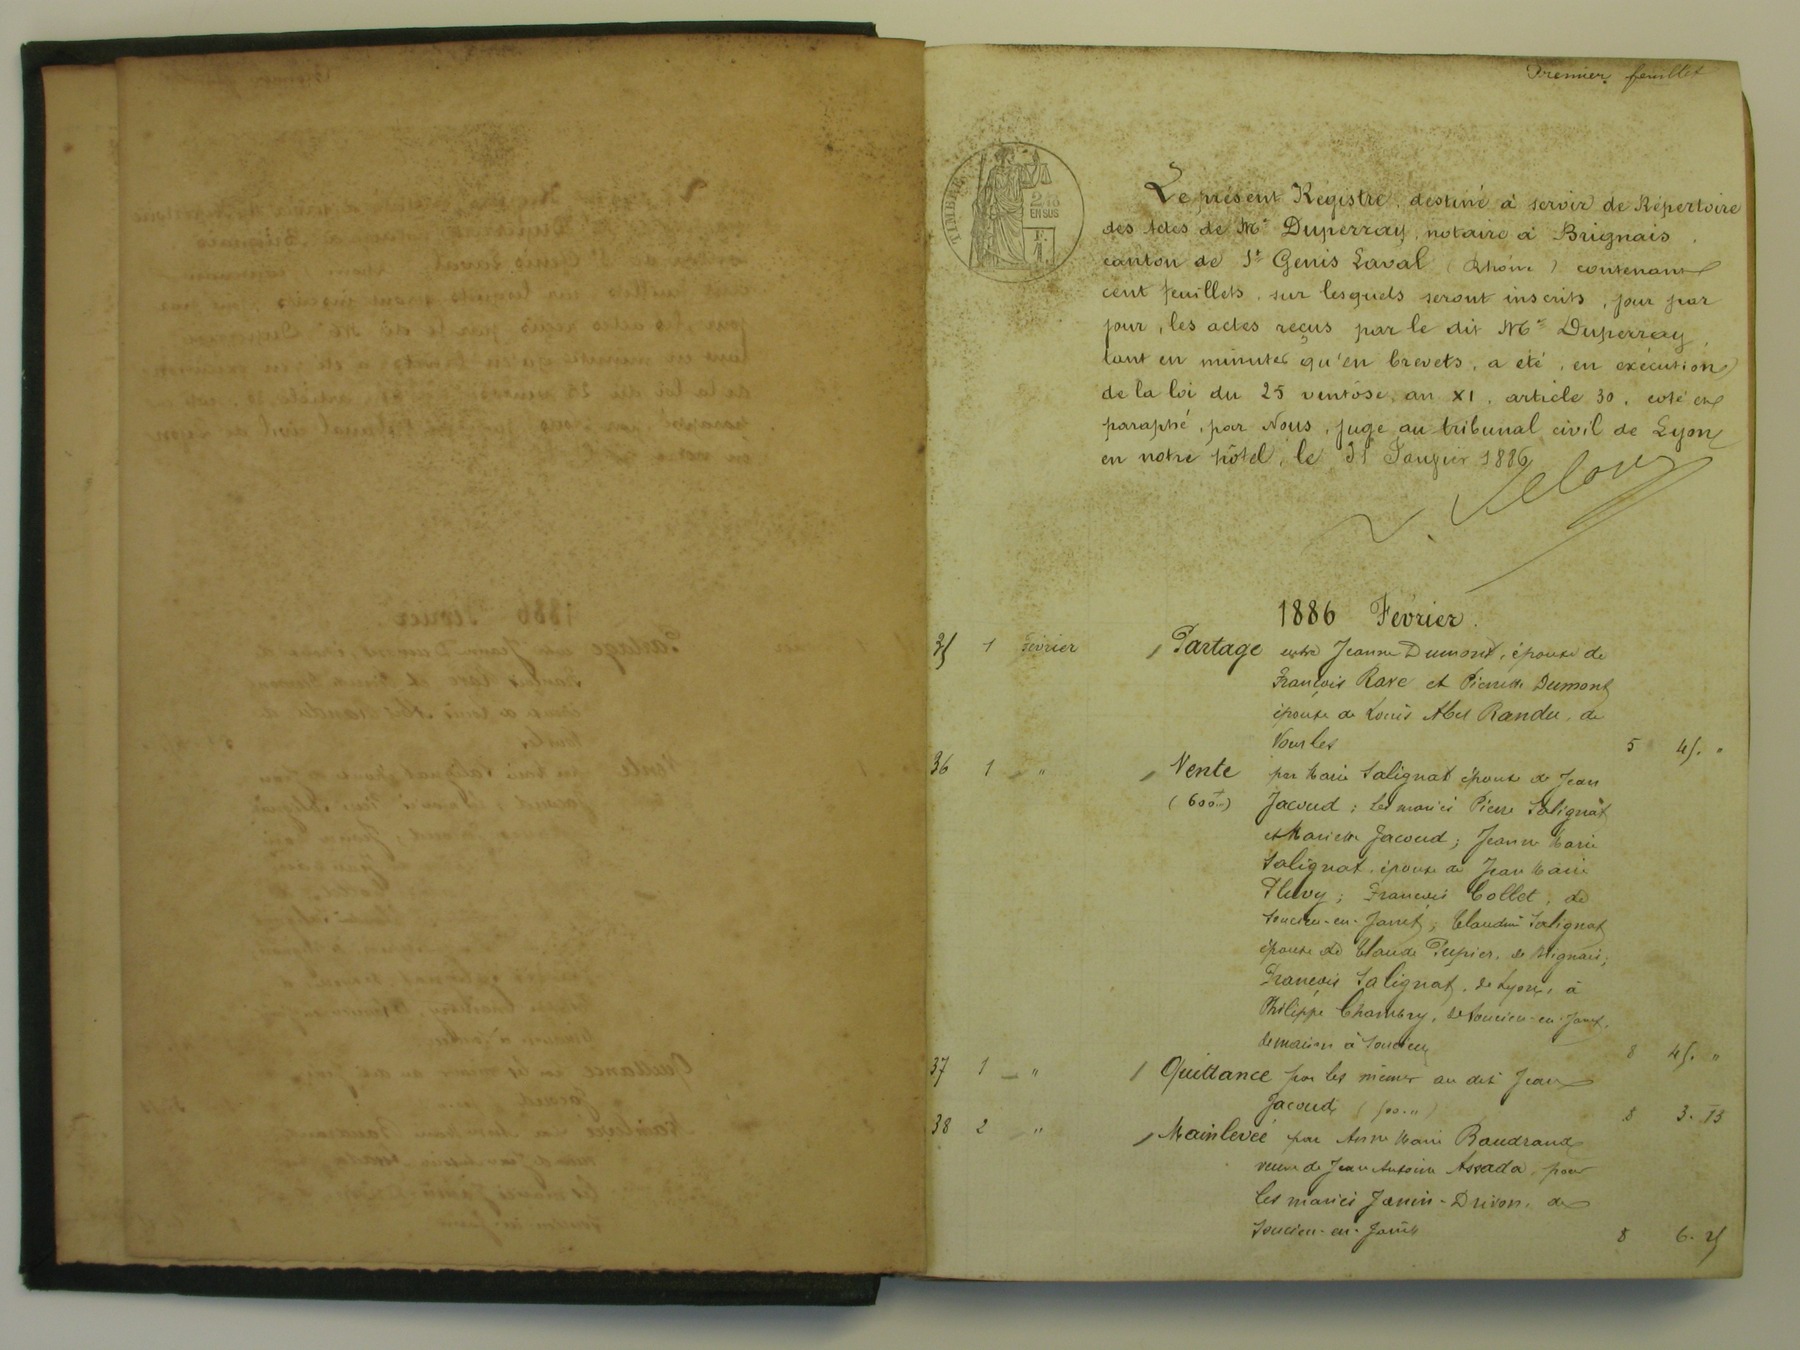 Premier feuillet
TIMBRE
2/10
EN SUS
Le présent Registre, destiné à servir de Répertoire
des Actes de Me Duperray, notaire à Brignais,
canton de St Genis Laval (Rhône) contenant
cent feuillets, sur lesquels seront inscrits, jour par
jour, les actes reçus par le dit Me Duperray,
tant en minutes qu'en brevets, a été, en exécution
de la loi du 25 ventôse, an XI, article 30, coté et
paraphé, par Nous, juge au tribunal civil de Lyon
en notre hôtel, le 31 Janvier 1886
1886 Février.
35 1 Février Partage entre Jeanne Dumont, épouse de
François Rave et Pierrette Dumont
épouse de Louis Abel Randu, de
Vourles 5 45. "
36 1 " Vente par Marie Salignat épouse de Jean
(600 fr) Jacoud; les mariés Pierre Salignat
et Mariette Jacoud; Jeanne Marie
Salignat, épouse de Jean Marie
Fluvy; François Collet, de
Soucieu-en-Jarret; Claudine Salignat
épouse de Claude Pupier, de Brignais;
François Salignat, de Lyon, à
Philippe Chambry, de Soucieu-en-Jarret,
de maison à Soucieu 8 45. "
37 1 " Quittance par les mêmes au dit Jean
Jacoud 8 3. 75
38 2 " Mainlevée par Anne Marie Baudrand
veuve de Jean Antoine Assada, pour
les mariés Jamin-Drivon, de
Soucieu-en-Jarret 8 6. 25